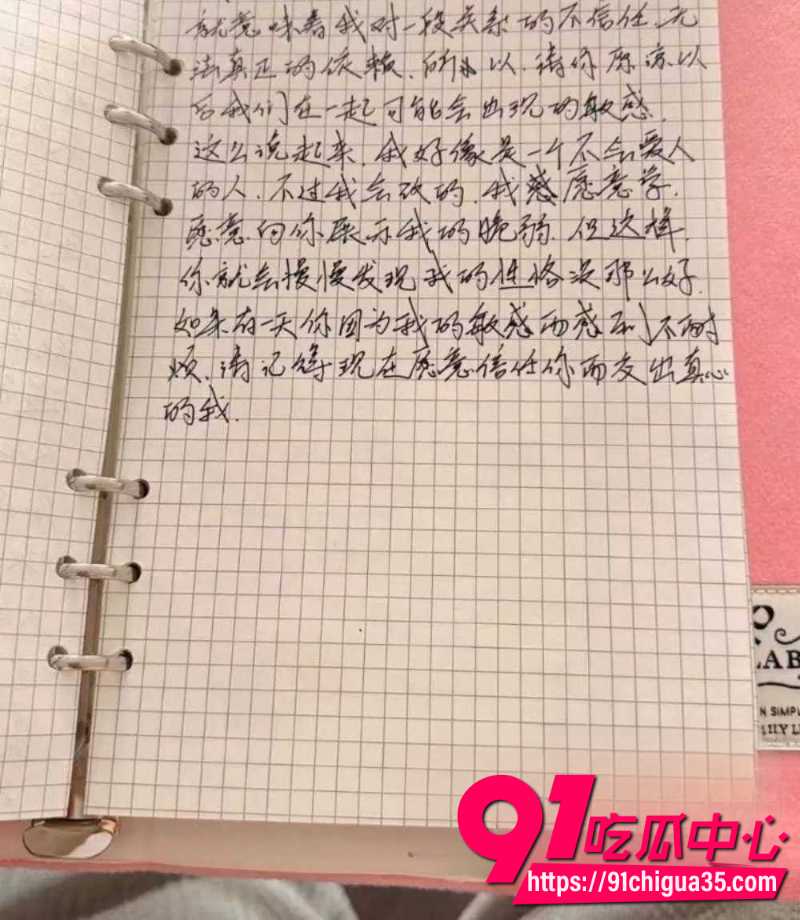 就意味着我对一段关系的不信任,无
法真正的依赖.所以,请你原谅以
后我们在一起可能会出现的敏感.
这么说起来,我好像是一个不会爱人
的人.不过我会改的.我愿意学.
愿意向你展示我的脆弱.但这样,
你就会慢慢发现我的性格没那么好.
如果有一天你因为我的敏感而感到不耐
烦,请记得现在愿意信任你而交出真心
的我.
LAB
N SIMPL
LILY L
91吃瓜中心
https://91chigua35.com